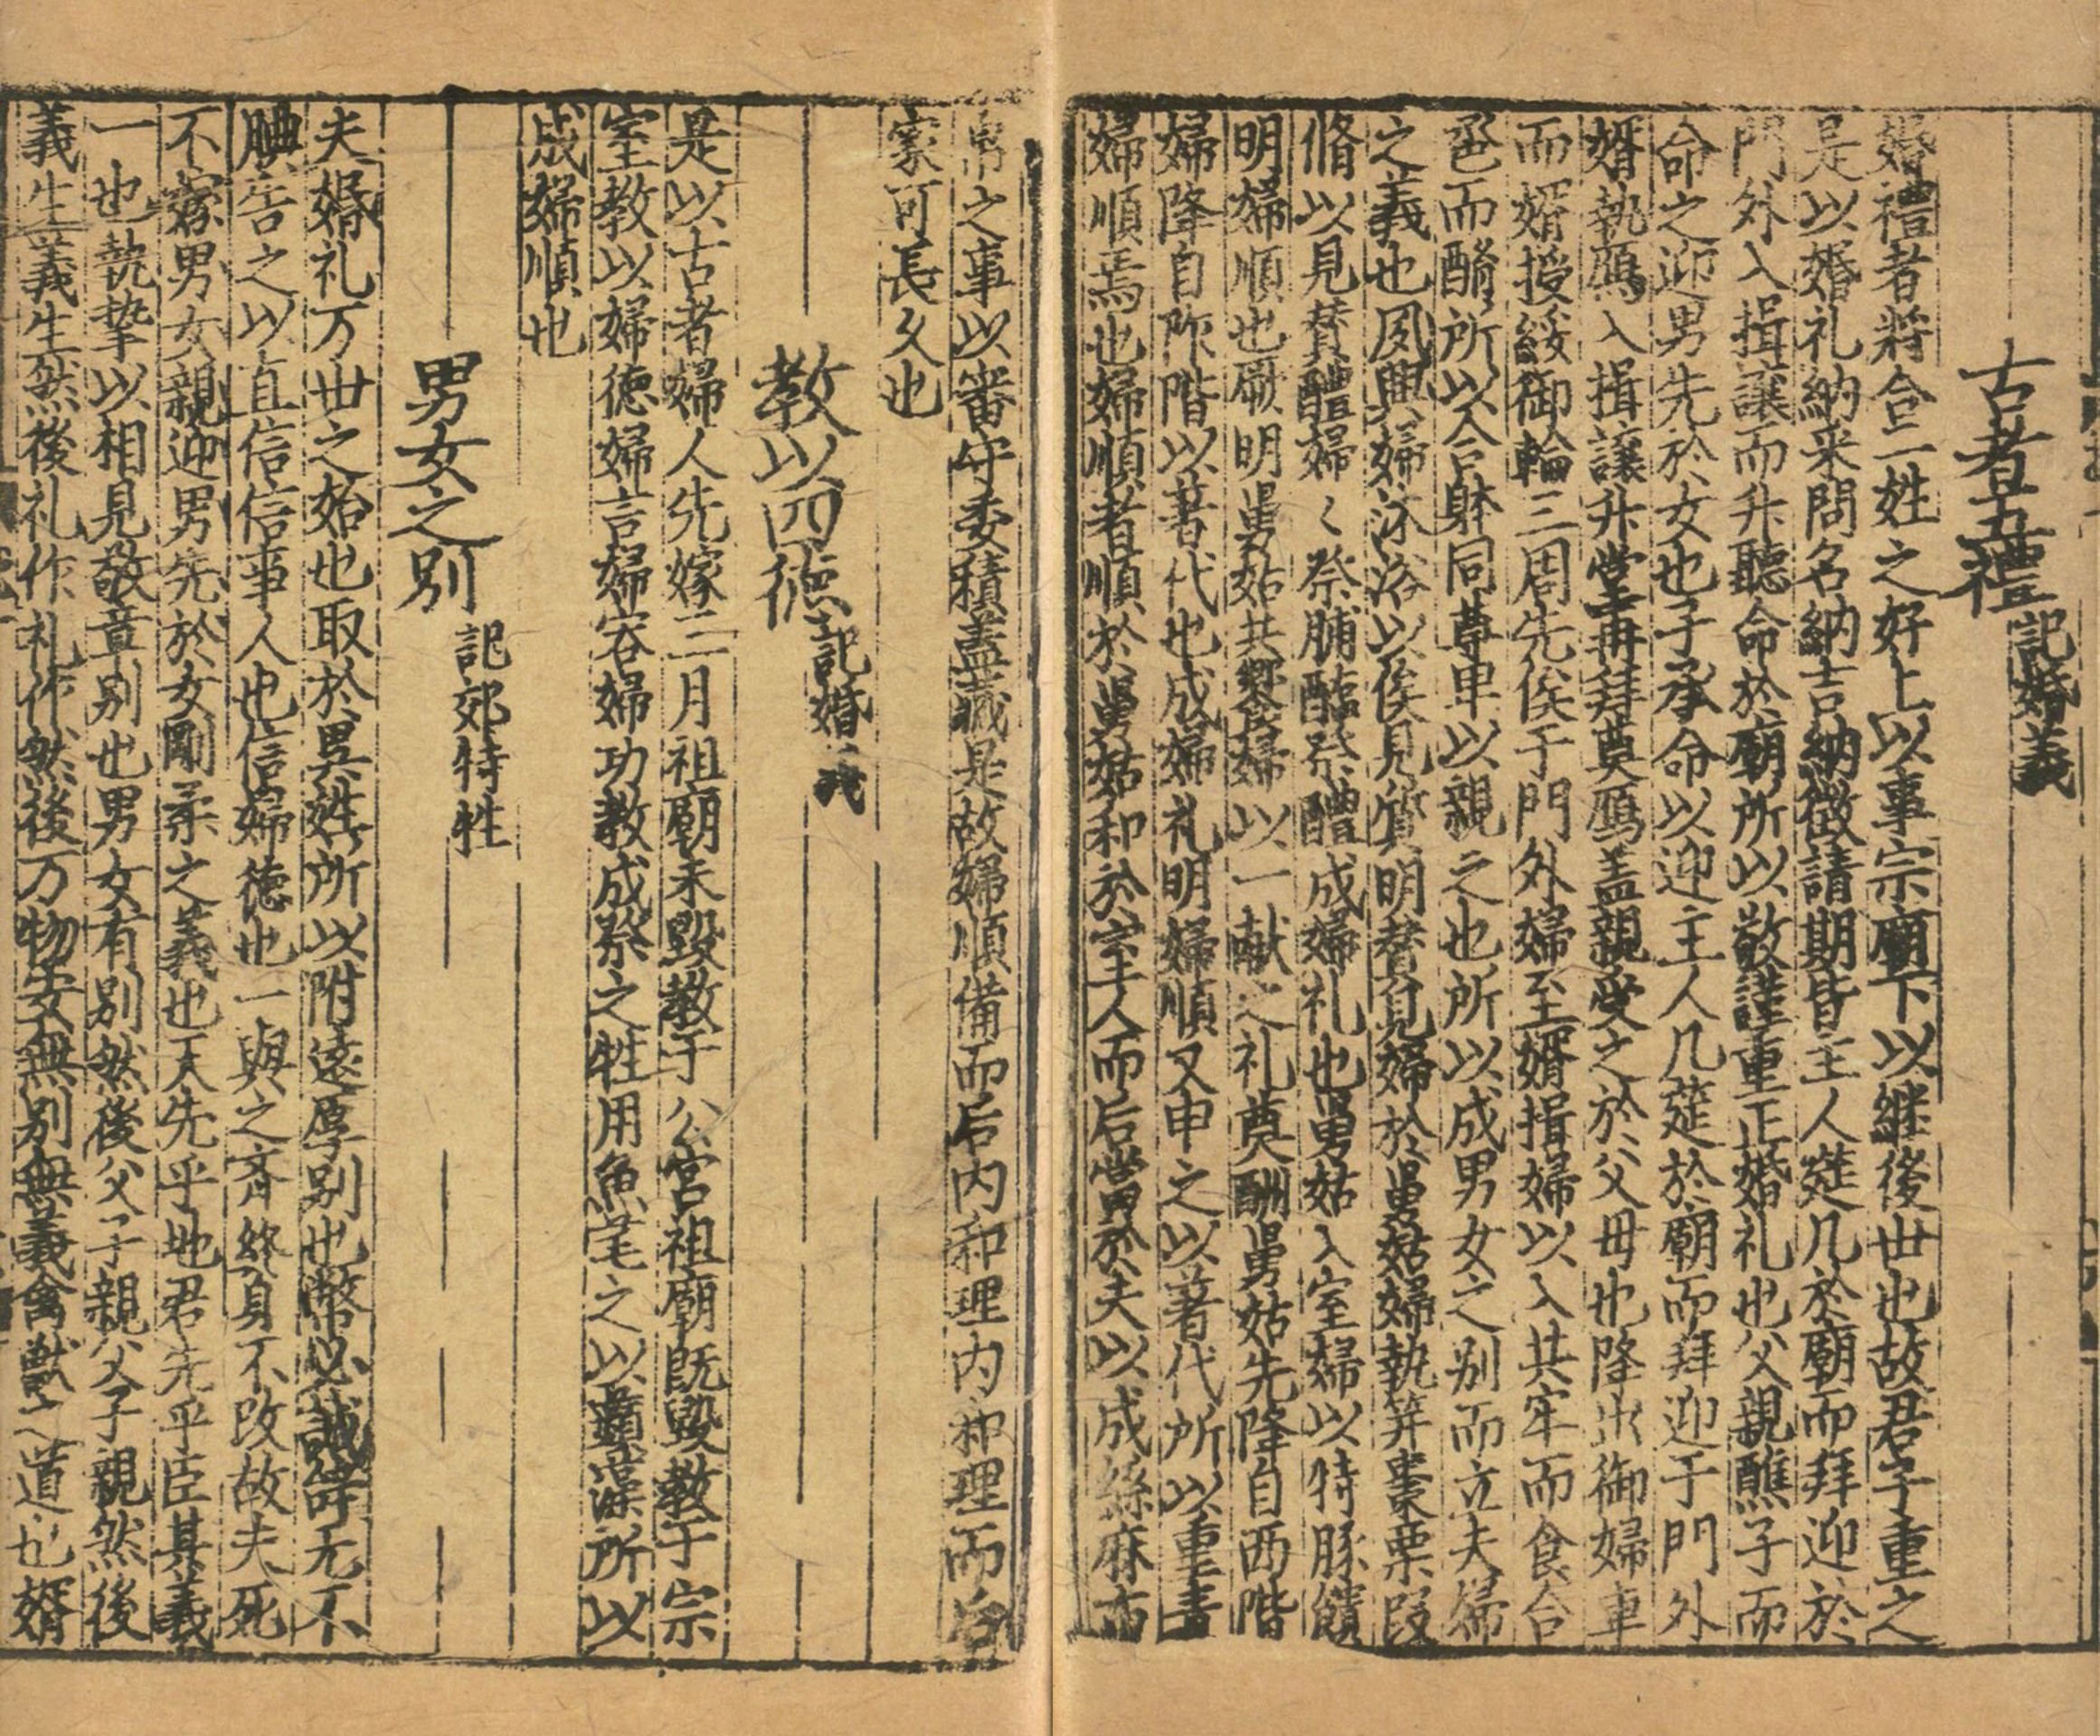 古者五禮 記婚義
婚禮者将合二姓之好上以事宗廟下以継後世也故君子重之
是以婚礼納采問名納吉納徴請期皆主人筵几於廟而拜迎於
門外入揖讓而升聽命於廟所以敬謹重正婚礼也父親醮子而
命之迎男先於女也子承命以迎主人几筵於廟而拜迎于門外
婿執鴈入揖讓升堂再拜奠鴈盖親受之於父母也降出御婦車
而婿授綏御輪三周先俟于門外婦至婿揖婦以入共牢而食合
卺而酳所以合躰同尊卑以親之也所以成男女之别而立夫婦
之義也夙興婦沐浴以俟見質明賛見婦於舅姑婦執笲棗栗段
脩以見賛醴婦〻祭脯醢祭醴成婦礼也舅姑入室婦以特豚饋
明婦順也厥明舅姑共饗婦以一献之礼奠酬舅姑先降自西階
婦降自阼階以著代也成婦礼明婦順又申之以著代所以重責
婦順焉也婦順者順於舅姑和於室人而后當於夫以成絲麻布
帛之事以審守委積盖藏是故婦順備而后内和理内和理而后
家可長久也
教以四徳 記婚義
是以古者婦人先嫁三月祖廟未毀教于公宮祖廟既毀教于宗
室教以婦徳婦言婦容婦功教成祭之牲用魚芼之以蘋藻所以
成婦順也
男女之别 記郊特牲
夫婚礼万世之始也取於異姓所以附遠厚别也幣必誠辞无不
腆告之以直信信事人也信婦徳也一與之齊終身不改故夫死
不嫁男女親迎男先於女剛柔之義也天先乎地君先乎臣其義
一也執摯以相見敬章别也男女有别然後父子親父子親然後
義生義生然後礼作礼作然後万物安無别無義禽獸之道也婿